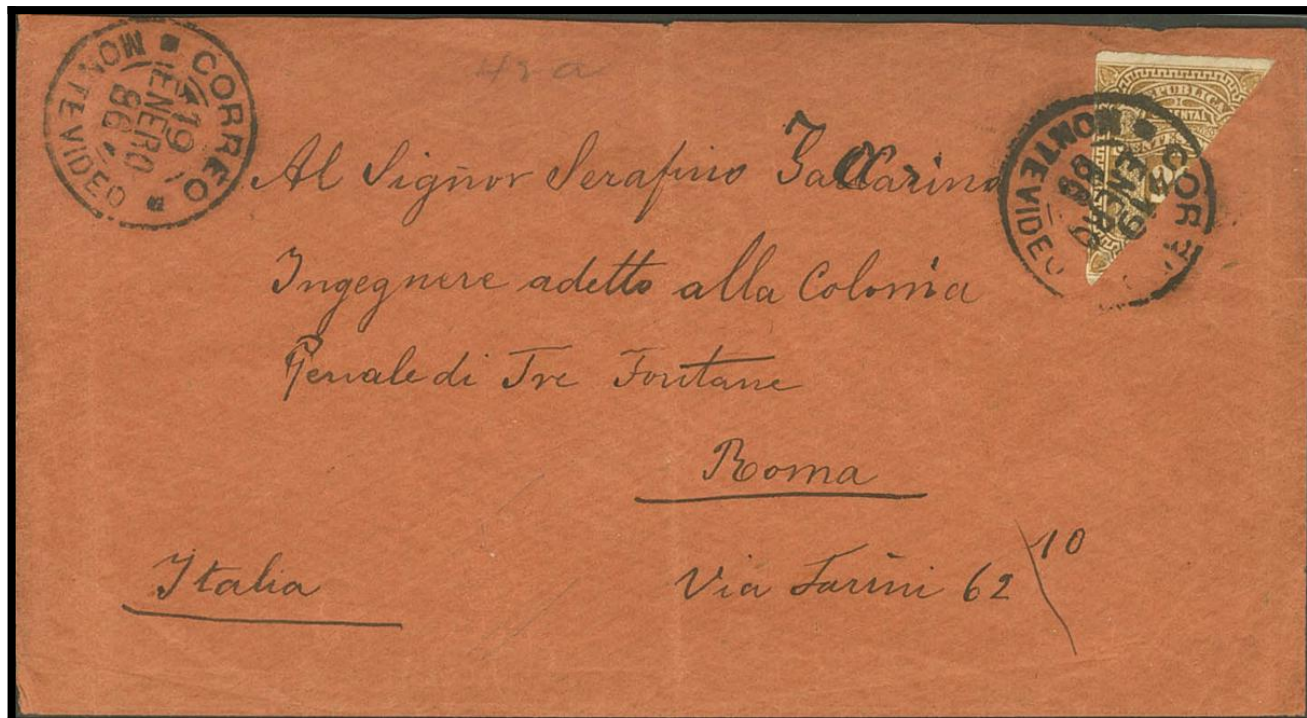 CORREO
MONTEVIDEO
19
ENERO
86
43a
REPUBLICA
ORIENTAL
CORREO
MONTEVIDEO
19
ENERO
86
Al Signor Serafino
Ingegnere adetto alla Colonia
Penale di Tre Fontane
Roma
Italia
Via Farini 62 10